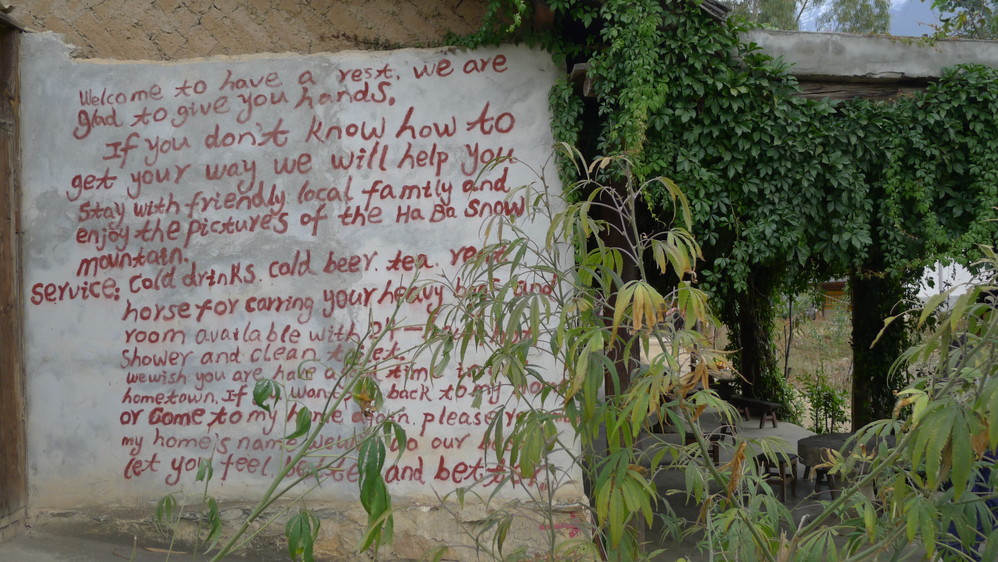 Welcome to have a rest. we are
glad to give you hands.
If you don't know how to
get your way we will help you
stay with friendly local family and
enjoy the pictures of the HaBa snow
mountain.
service: Cold drinks. cold beer. tea. rent
horse for carring your heavy and
room available with 24 hot
shower and clean toilet.
we wish you are have a time in
hometown. If want back to my
or come to my home again. please
my home's name we to our
let you feel better and better.